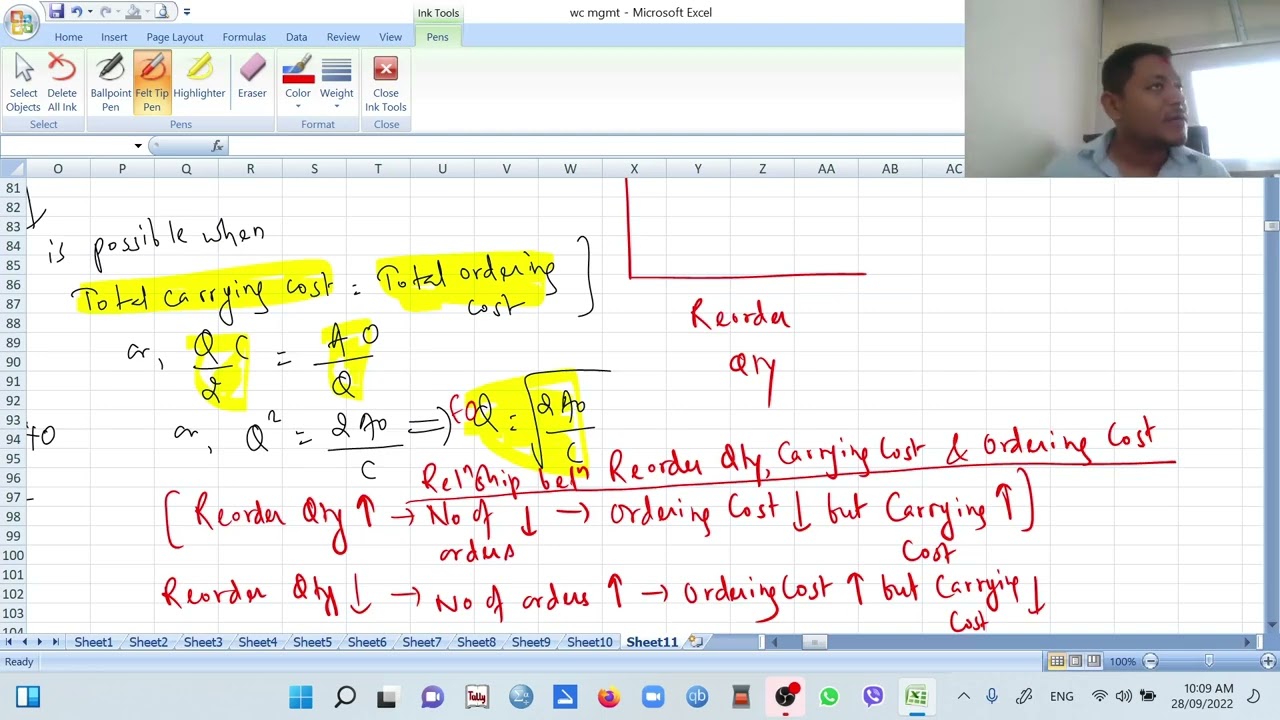 Ink Tools
wc mgmt - Microsoft Excel
Home Insert Page Layout Formulas Data Review View Pens
Select Objects
Delete All Ink
Ballpoint Pen
Felt Tip Pen
Highlighter
Eraser
Color
Weight
Close Ink Tools
Select Pens Format Close
fx
O P Q R S T U V W X Y Z AA AB AC
81
82
83
84
85
86
87
88
89
90
91
92
93
94
95
96
97
98
99
100
101
102
103
104
is possible when
Total carrying cost = Total ordering cost
or, Q/2 C = A/Q O
or, Q² = 2AO/C => EOQ = √2AO/C
Reorder Qty
Rel'nship bet'n Reorder Qty, Carrying Cost & Ordering Cost
[Reorder Qty ↑ → No of orders ↓ → Ordering Cost ↓ but Carrying Cost ↑]
Reorder Qty ↓ → No of orders ↑ → Ordering Cost ↑ but Carrying Cost ↓
Sheet1 Sheet2 Sheet3 Sheet4 Sheet5 Sheet6 Sheet7 Sheet8 Sheet9 Sheet10 Sheet11
Ready
100%
Tally
qb
ENG
10:09 AM
28/09/2022